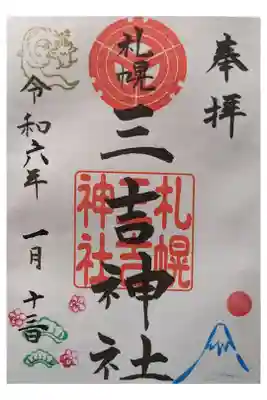 奉拝
札幌
三吉神社
札幌
三吉
神社
令和六年 一月 十三日